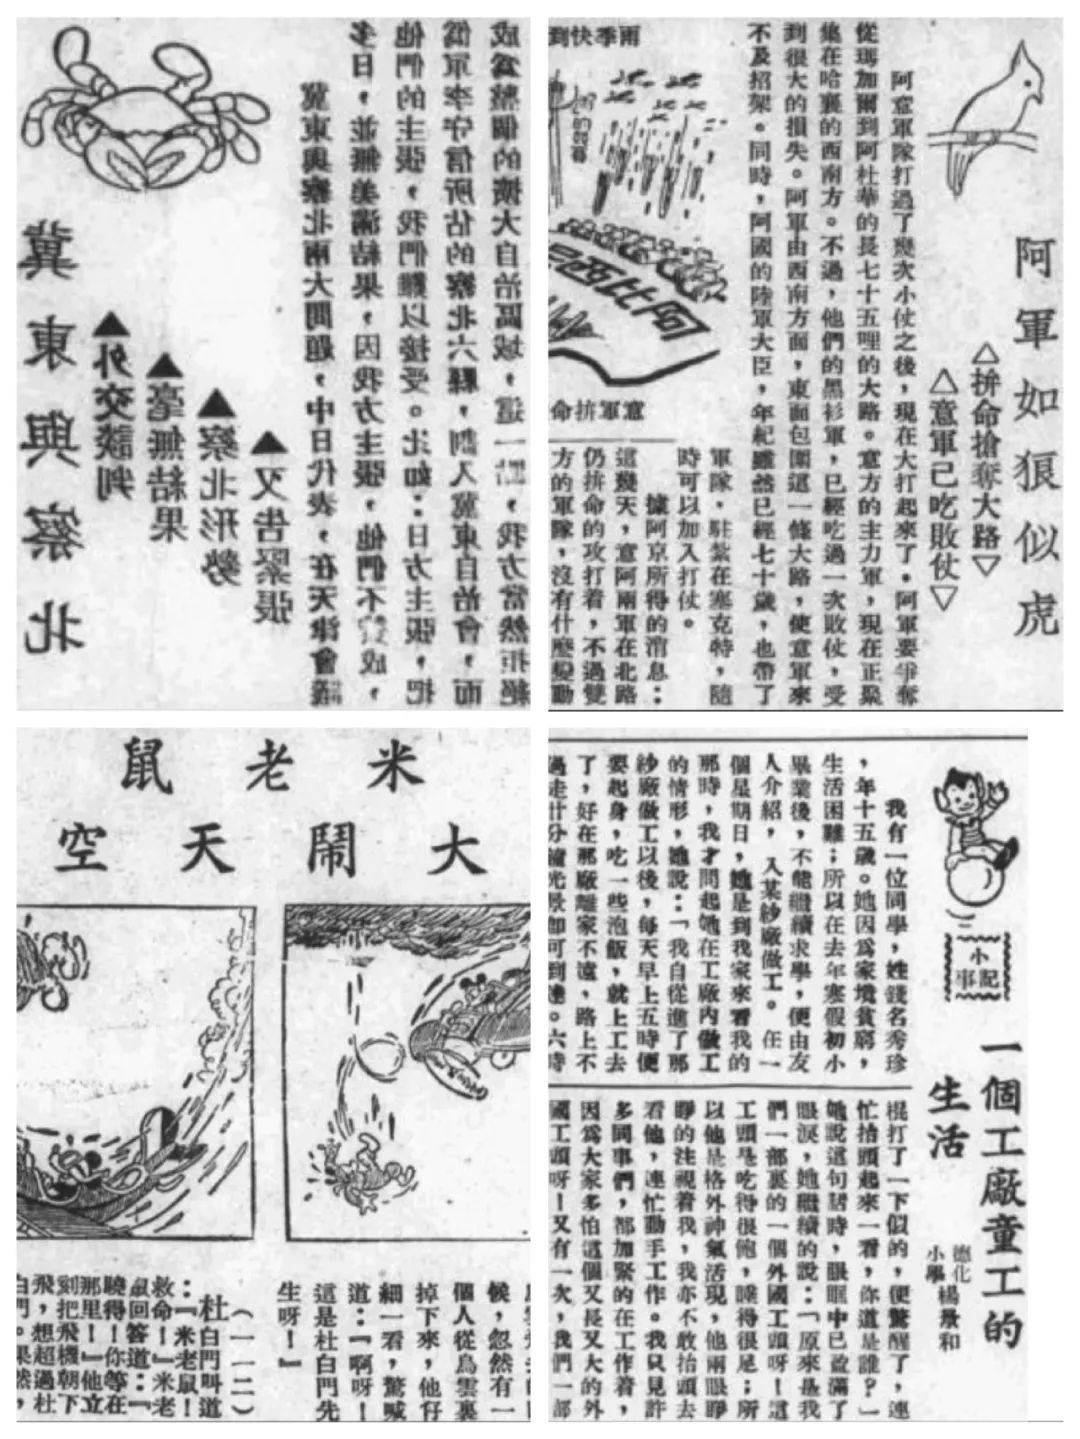 冀東與察北
▲外交談判
▲毫無結果
▲察北形勢
▲又告緊張
冀東與察北兩大問題，中日代表，在天津會議
多日，並無美滿結果，因我方主張，他們不贊成，
他們的主張，我們難以接受。比如：日方主張，把
僞軍李守信所佔的察北六縣，劃入冀東自治會，而
成爲整個的擴大自治區域，這一點，我方當然拒絕
阿軍如狼似虎
△拚命搶奪大路▽
△意軍已吃敗仗▽
阿意軍隊打過了幾次小仗之後，現在大打起來了。阿軍要爭奪
從瑪加爾到阿杜華的長七十五哩的大路。意方的主力軍，現在正聚
集在哈襄的西南方。不過，他們的黑衫軍，已經吃過一次敗仗，受
到很大的損失。阿軍由西南方面，東面包圍這一條大路，使意軍來
不及招架。同時，阿國的陸軍大臣，年紀雖然已經七十歲，也帶了
軍隊，駐紮在塞克特，隨
時可以加入打仗。
據阿京所得的消息：
這幾天，意阿兩軍在北路
仍拚命的攻打着，不過雙
方的軍隊，沒有什麼變動
雨季快到
阿比西尼
意軍拚命
米老鼠
大鬧天空
候，忽然有一
個人從烏雲裏
掉下來，他仔
細一看，驚喊
道：『啊呀！
這是杜白門先
生呀！』
（一一二）
杜白門叫道
：『米老鼠！
救命！』米老
鼠回答道：『
曉得！你等在
那里！』他立
刻把飛機朝下
飛，想超過杜
白門。果然，
小記事
一個工廠童工的
生活
德化小學 楊景和
我有一位同學，姓錢名秀珍
，年十五歲。她因爲家境貧窮，
生活困難；所以在去年寒假初小
畢業後，不能繼續求學，便由友
人介紹，入某紗廠做工。在一
個星期日，她是到我家來看我的
那時，我才問起她在工廠內做工
的情形，她說：「我自從進了那
紗廠做工以後，每天早上五時便
要起身，吃一些泡飯，就上工去
了，好在那廠離家不遠，路上不
過走廿分鐘光景即可到達。六時
棍打了一下似的，便驚醒了，連
忙抬頭起來一看，你道是誰？」
她說這句話時，眼眶中已盈滿了
眼淚，她繼續的說：「原來是我
們一部裏的一個外國工頭呀！這
工頭是吃得很飽，睡得很足；所
以他是格外神氣活現，他兩眼睜
睜的注視着我，我亦不敢抬頭去
看他，連忙動手工作。我只見許
多同事們，都加緊的在工作着，
因爲大家多怕這個又長又大的外
國工頭呀！又有一次，我們一部